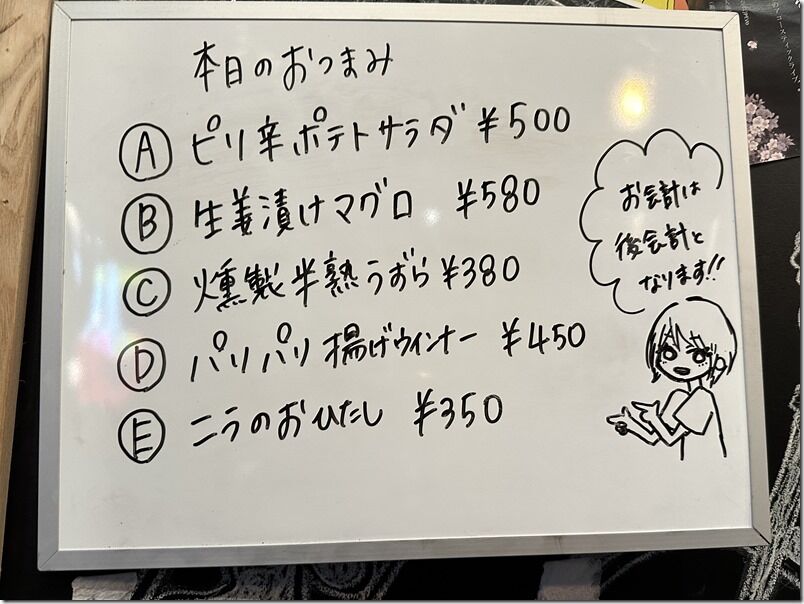 本日のおつまみ
Ⓐ ピリ辛ポテトサラダ ¥500
Ⓑ 生姜漬けマグロ ¥580
Ⓒ 燻製半熟うずら ¥380
Ⓓ パリパリ揚げウインナー ¥450
Ⓔ ニラのおひたし ¥350
お会計は
後会計と
なります!!
のアコースティックライブ